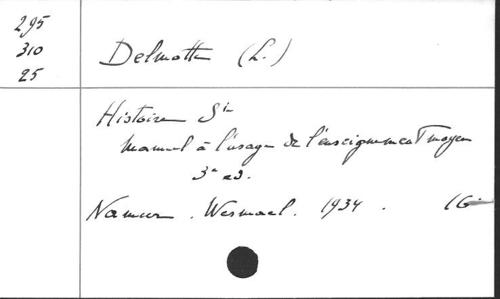 295
310
25
Delmotte (L.)
Histoire Ste
Manuel à l'usage de l'enseignement moyen
3e ed.
Namur. Wesmael. 1934.